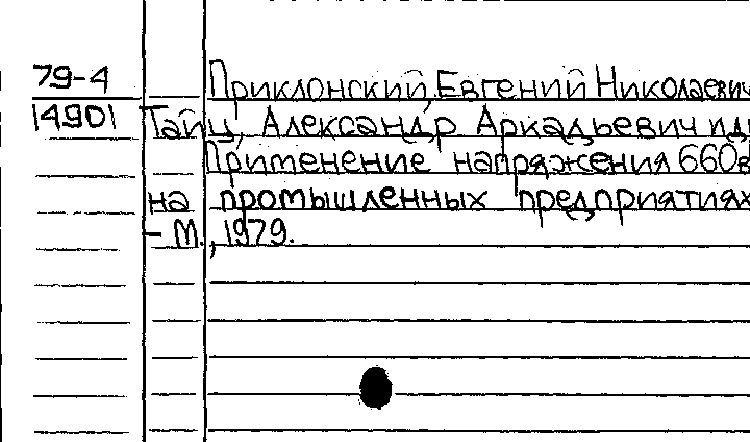 79-4 Приклонский, Евгений Николаевич
14901 Тайц, Александр Аркадьевич и др
Применение напряжения 660в
на промышленных предприятиях
- М., 1979.